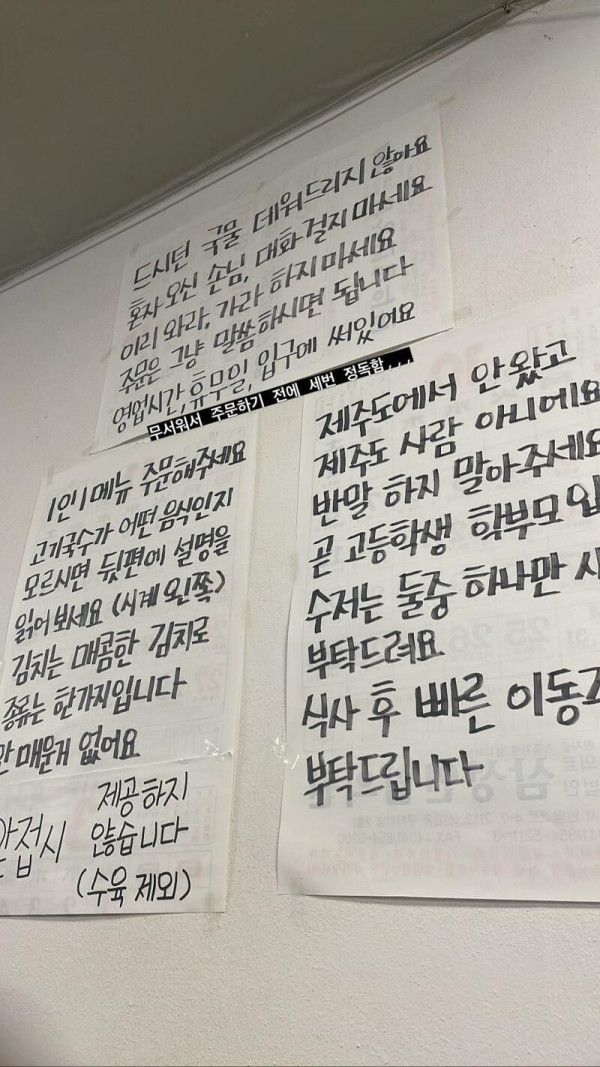 드시던 국물 데워드리지 않아요
혼자 오신 손님, 대화 걸지 마세요
이리 와라, 가라 하지 마세요
주문은 그냥 말씀하시면 됩니다
영업시간, 휴무일, 입구에 써있어요
무서워서 주문하기 전에 세번 정독함...
1인 1메뉴 주문해주세요
고기국수가 어떤 음식인지
모르시면 뒷편에 설명을
읽어 보세요 (시계 왼쪽)
김치는 매콤한 김치로
종류는 한가지입니다
안 매운거 없어요
앞접시 제공하지
않습니다
(수육 제외)
제주도에서 안 왔고
제주도 사람 아니에요
반말 하지 말아주세요
곧 고등학생 학부모
수저는 둘중 하나만
부탁드려요
식사 후 빠른 이동
부탁드립니다